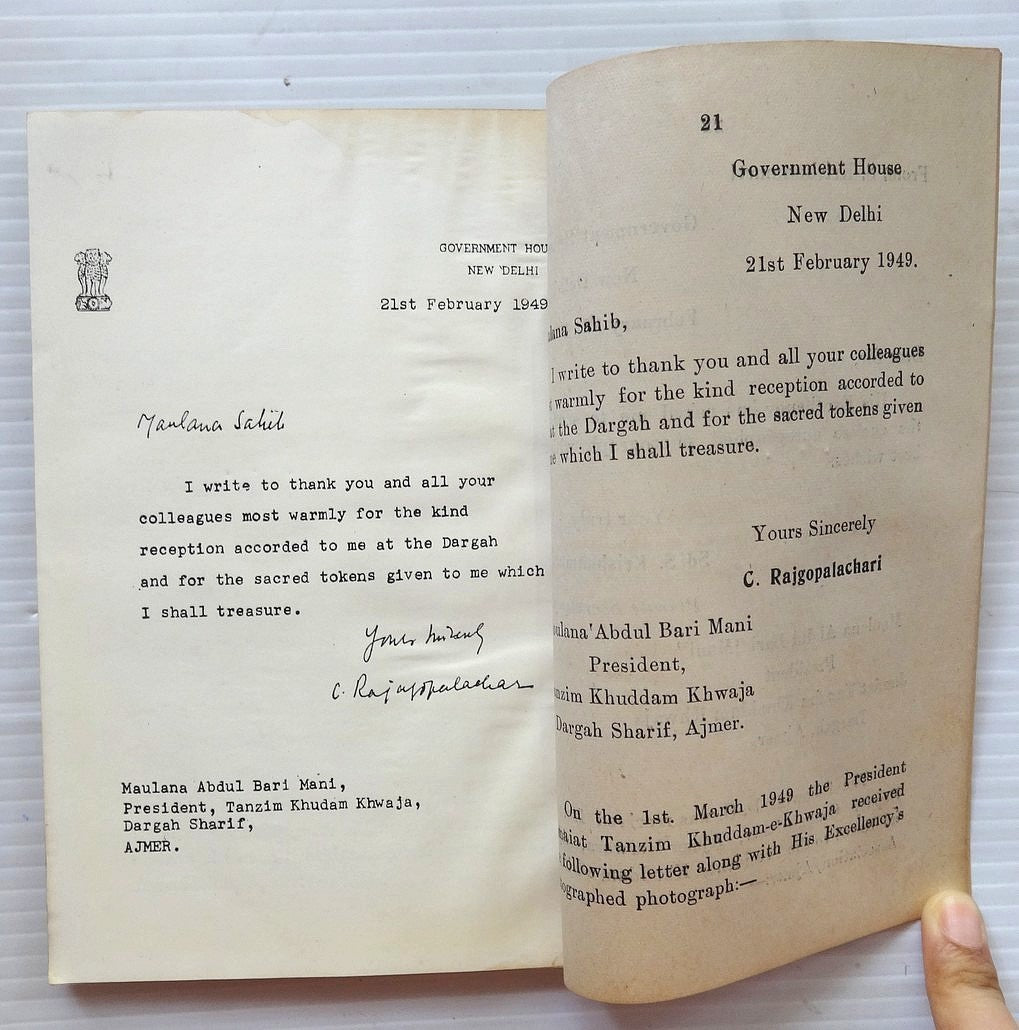 GOVERNMENT HOU
NEW DELHI
21st February 1949
Maulana Sahib
I write to thank you and all your
colleagues most warmly for the kind
reception accorded to me at the Dargah
and for the sacred tokens given to me which
I shall treasure.
Yours sincerely
C. Rajagopalachari
Maulana Abdul Bari Mani,
President, Tanzim Khudam Khwaja,
Dargah Sharif,
AJMER.
21
Government House
New Delhi
21st February 1949.
lana Sahib,
I write to thank you and all your colleagues
warmly for the kind reception accorded to
the Dargah and for the sacred tokens given
which I shall treasure.
Yours Sincerely
C. Rajgopalachari
ulana Abdul Bari Mani
President,
nzim Khuddam Khwaja
Dargah Sharif, Ajmer.
On the 1st. March 1949 the President
aiat Tanzim Khuddam-e-Khwaja received
following letter along with His Excellency's
ographed photograph:—